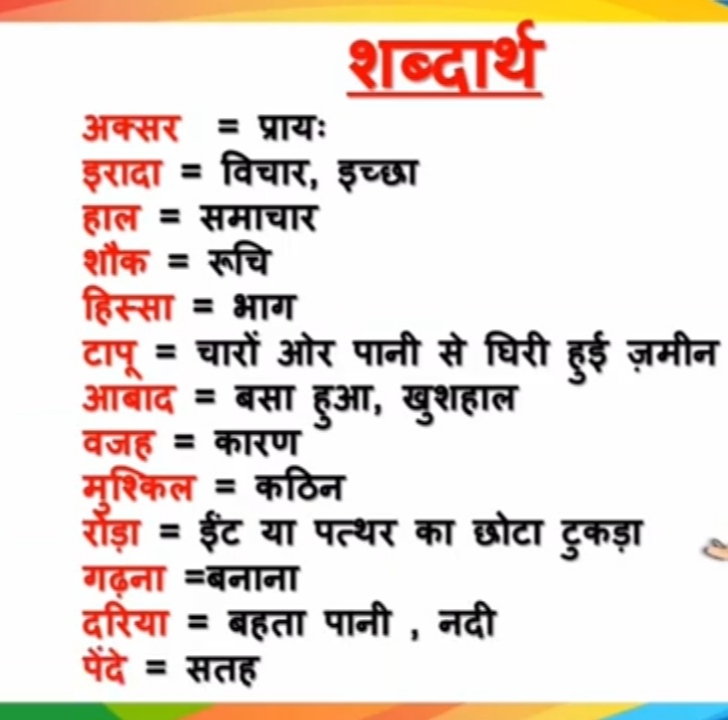 शब्दार्थ
अक्सर = प्रायः
इरादा = विचार, इच्छा
हाल = समाचार
शौक = रूचि
हिस्सा = भाग
टापू = चारों ओर पानी से घिरी हुई ज़मीन
आबाद = बसा हुआ, खुशहाल
वजह = कारण
मुश्किल = कठिन
रोड़ा = ईंट या पत्थर का छोटा टुकड़ा
गढ़ना =बनाना
दरिया = बहता पानी , नदी
पेंदे = सतह